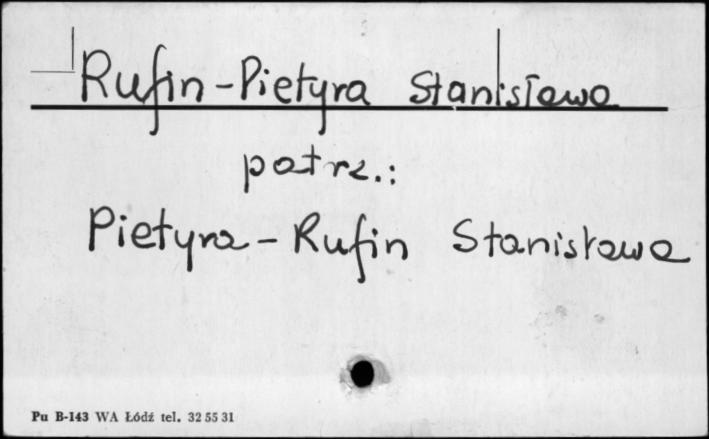 Rufin-Pietyra Stanisława
patrz.:
Pietyra-Rufin Stanisława
Pu B-143 WA Łódź tel. 32 55 31